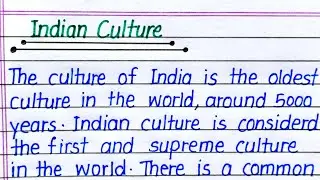 Indian Culture
The culture of India is the oldest
culture in the world, around 5000
years. Indian culture is considerd
the first and supreme culture
in the world. There is a common